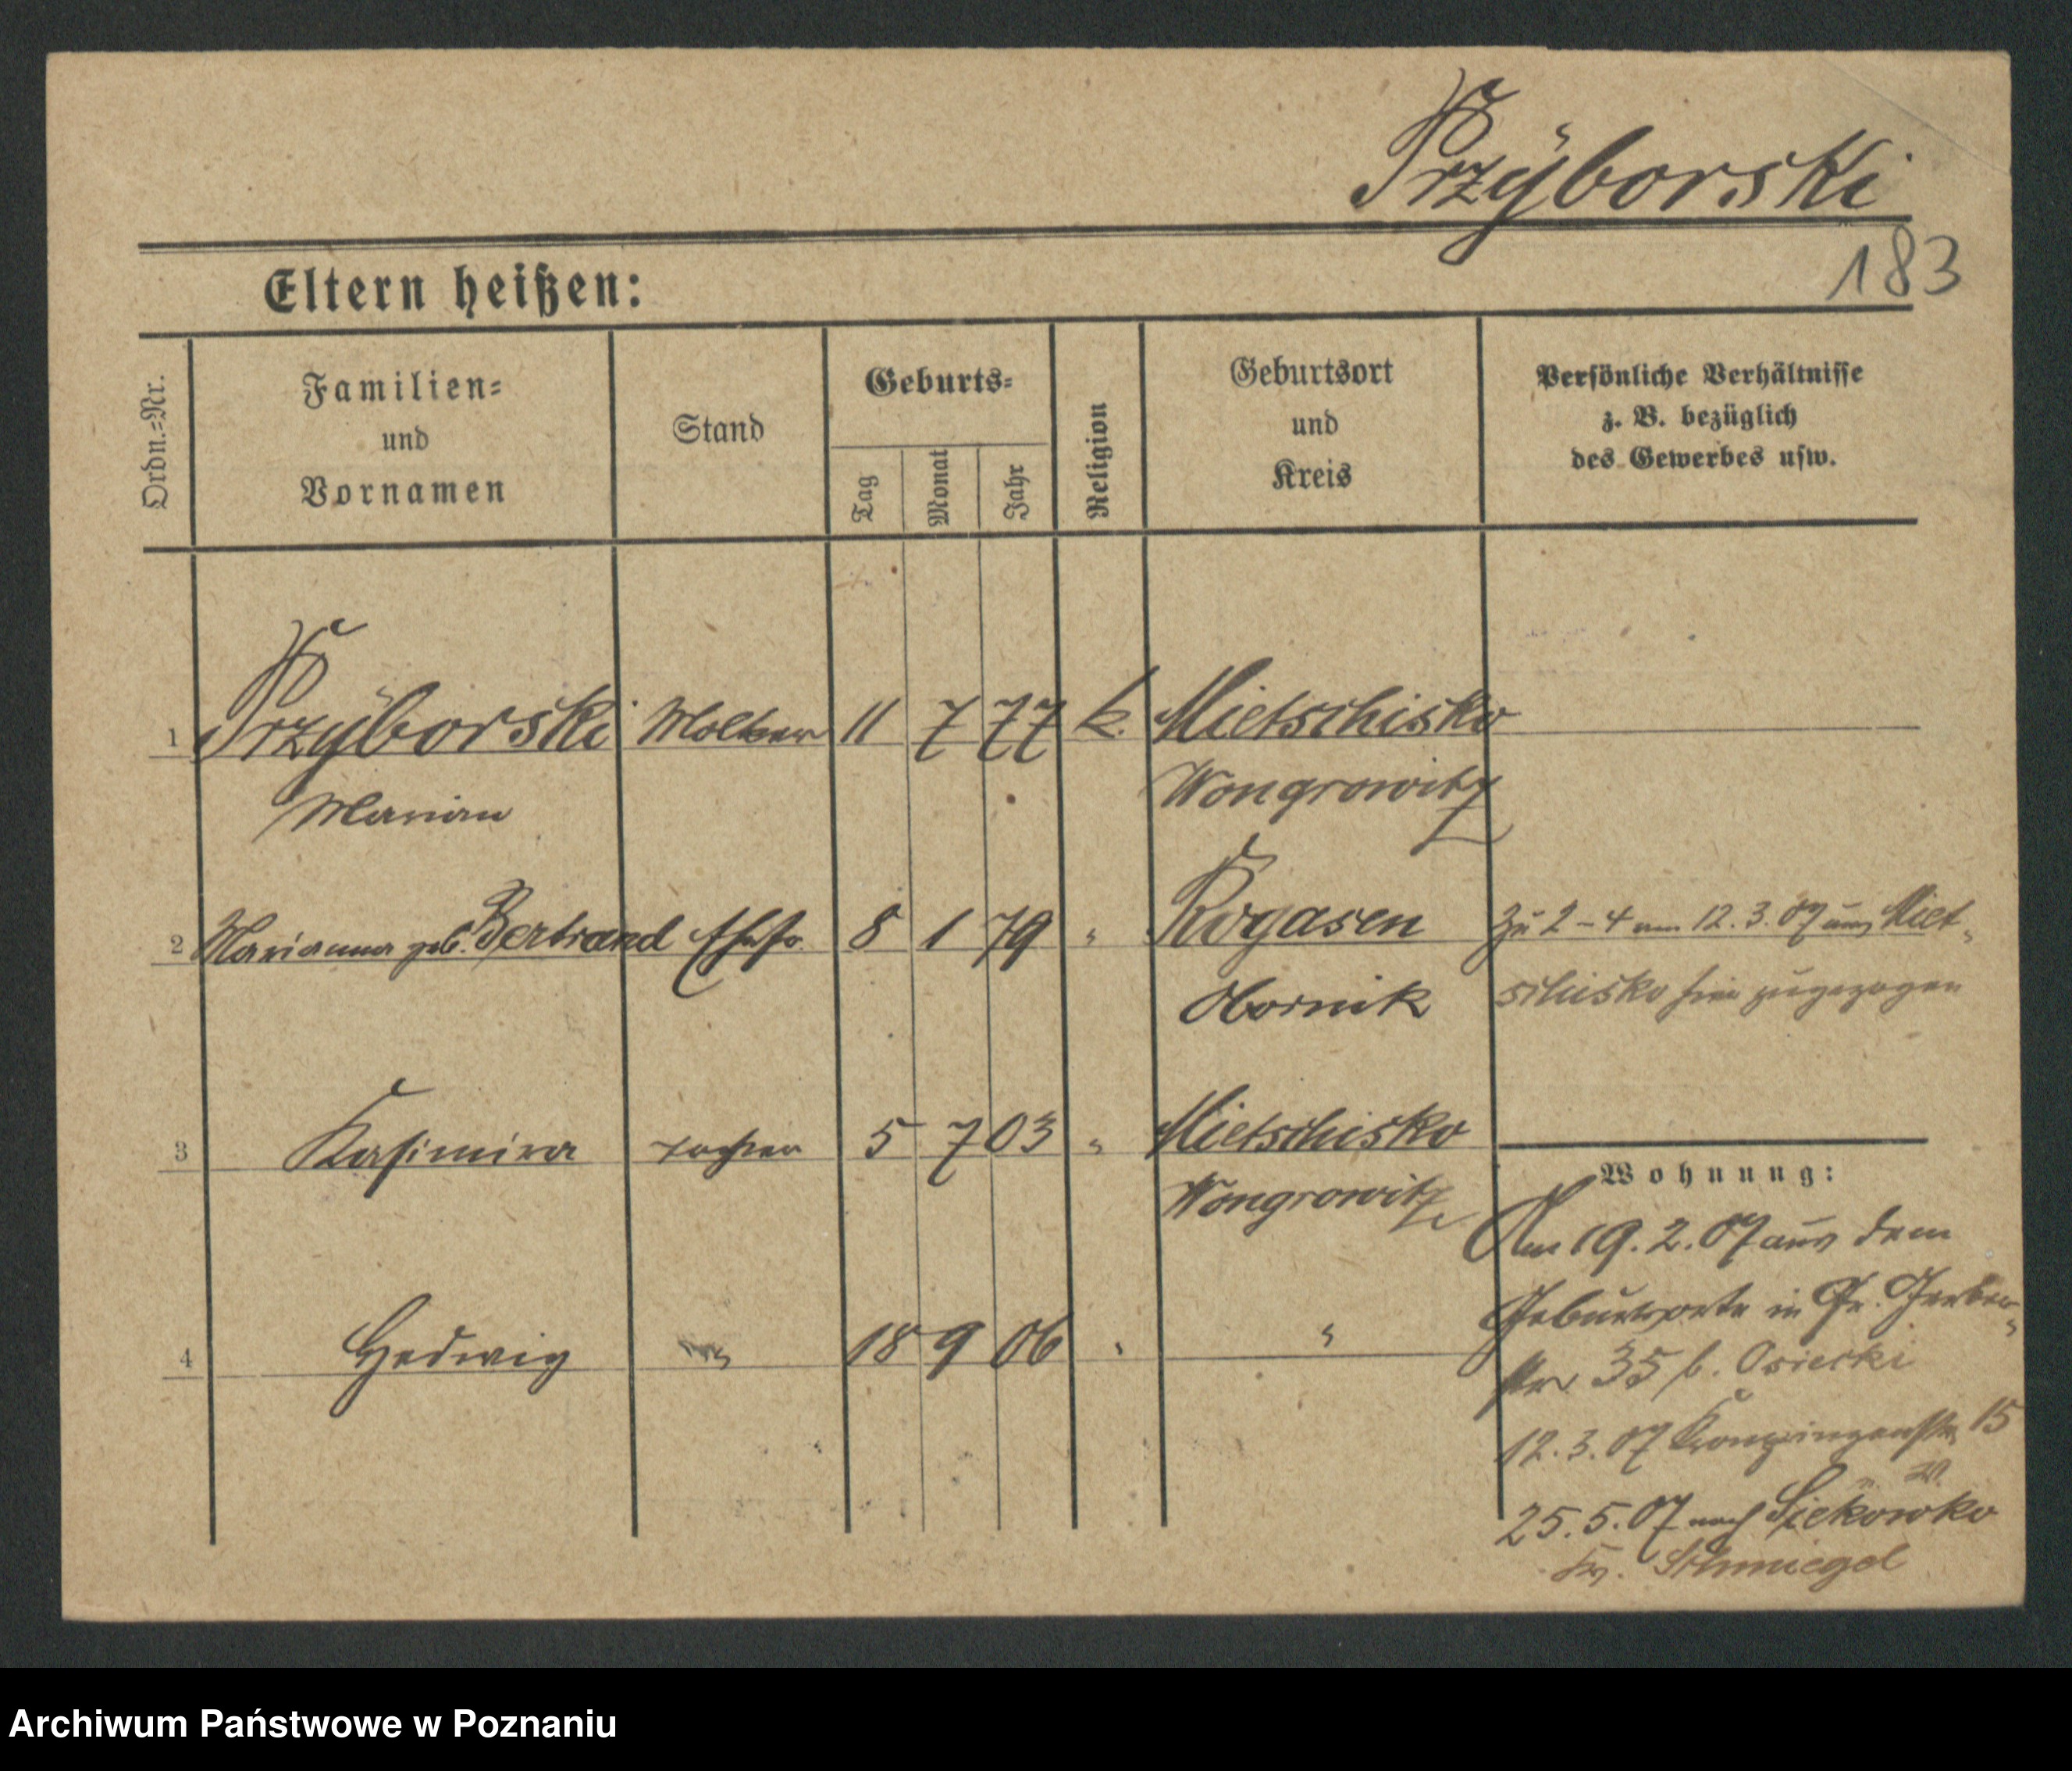 Przÿborski
183
Eltern heißen:
Ordn.=Nr.
Familien=
und
Vornamen
Stand
Geburts=
Tag
Monat
Jahr
Religion
Geburtsort
und
Kreis
Persönliche Verhältnisse
z. B. bezüglich
des Gewerbes usw.
1 Przÿborski Molker 11 7 77 k. Mietschisko
Marian Wongrowitz
2 Marianna geb. Bertrand Ehefr. 8 1 79 " Rogasen
Obornik
Zu 2 – 4 am 12. 3. 07 aus Miet-
schisko hier zugezogen
3 Kasimira Tochter 5 7 03 " Mietschisko
Wongrowitz
4 Hedwig " 18 9 06 " "
Wohnung:
Am 19. 2. 07 aus dem
Geburtsorte in Gr. Gerber-
str. 35 b. Osiecki
12. 3. 07 Kronprinzenstr. 15
25. 5. 07 nach Siekowko
Kr. Schmiegel
Archiwum Państwowe w Poznaniu